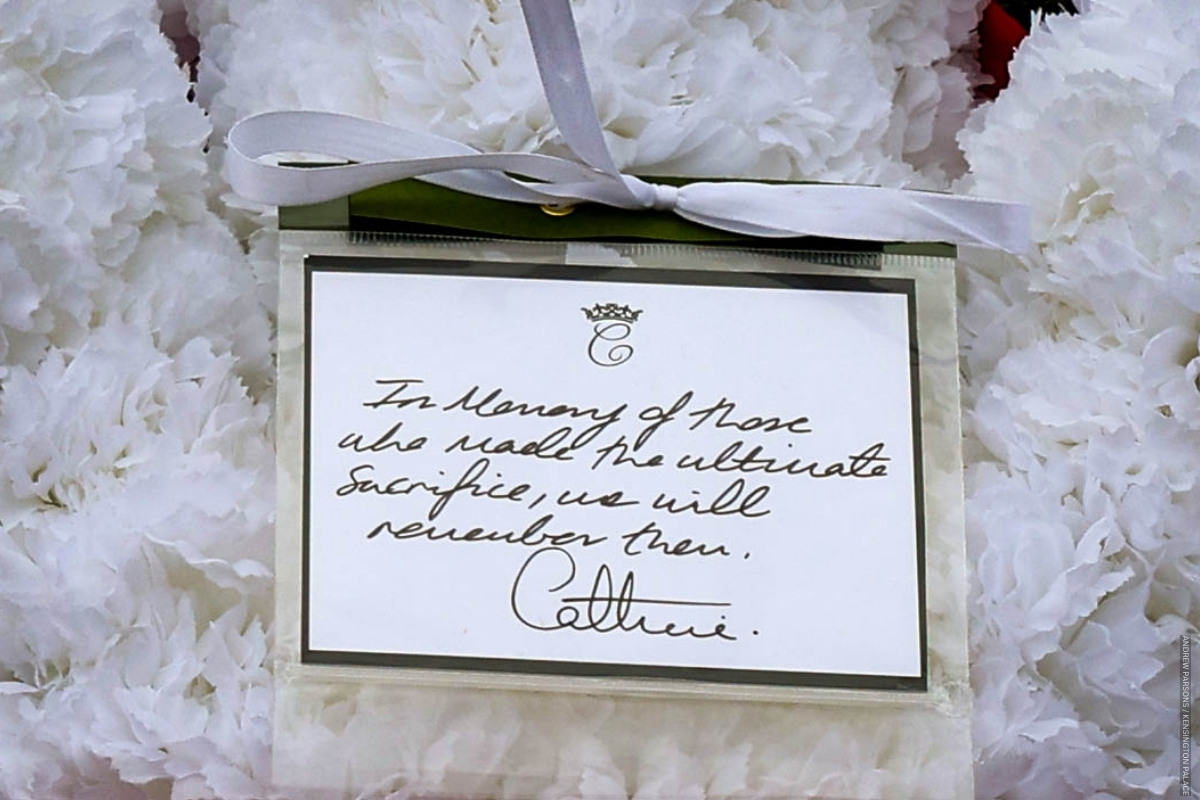 C
In Memory of those
who made the ultimate
Sacrifice, we will
remember them.
Catherine.
ANDREW PARSONS / KENSINGTON PALACE